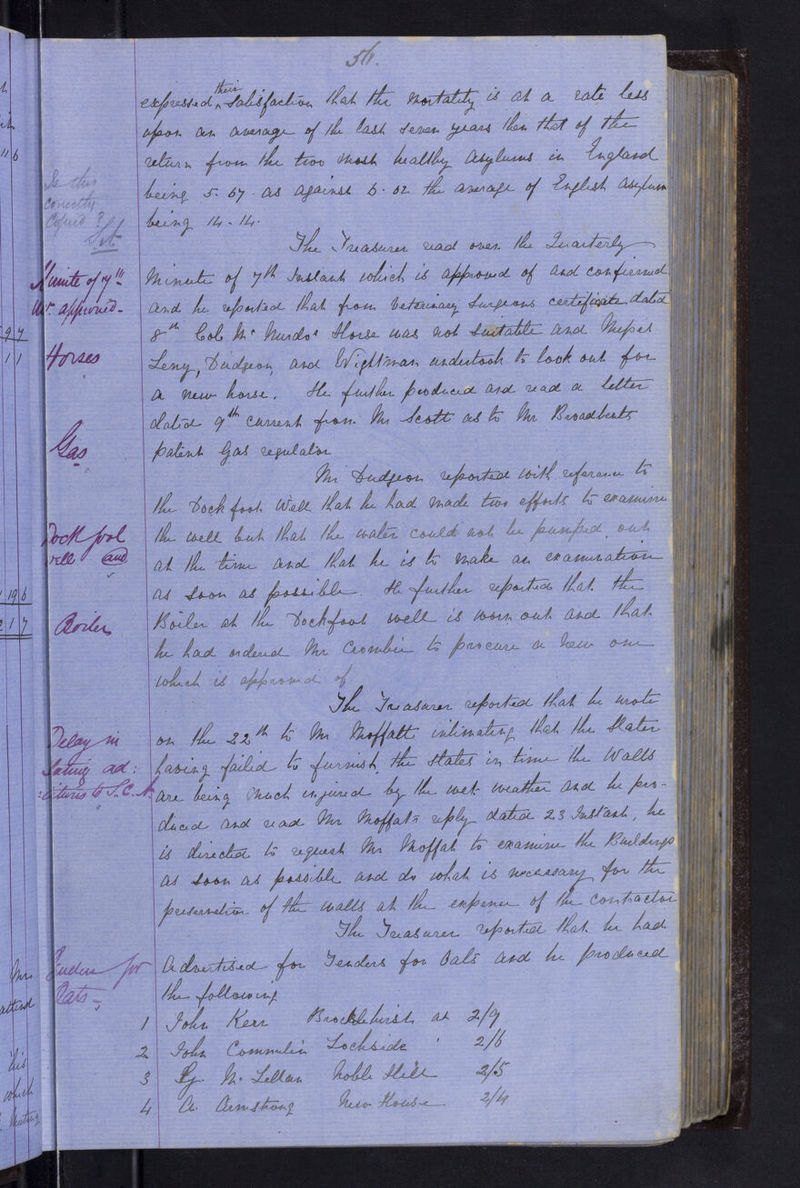 56.
expressed their satisfaction that the mortality is at a rate less
upon an average of the last seven years then that of the
return from the two most healthy Asylums in England
being 5.67. as against 6.02 the average of English Asylum
being 14.14.
Is this
correctly
Copied?
The Treasurer read over the Quarterly
Minute of 7th
approved.
Minute of 7th Instant which is approved of and confirmed
and he reported that from Veterinary Surgeons certificate dated
8th Col. Mc Murdo's Horse was not Suitable and Messrs
Horses
Leny, Dudgeon, and Wightman undertook to look out for
a new horse. He further produced and read a letter
dated 9th current from Mr Scott as to Mr Broadbents
Gas
patent Gas regulator
Mr Dudgeon reported with reference to
the Dockfoot Well that he had made two efforts to examine
Dockfoot
well and
the well but that the water could not be pumped out
at the time and that he is to make an examination
as soon as possible. He further reported that the
Boiler
Boiler at the Dockfoot well is worn out and that
he had ordered Mr Crombie to procure a new one
which is approved of
The Treasurer reported that he wrote
Delay in
slating ad:
:ditions to S.C.A
on the 22th to Mr Moffatt intimating that the Slater
having failed to furnish the slates in time the Walls
are being much injured by the wet weather and he pro-
duced and read Mr Moffats reply dated 23 Instant, he
is directed to request Mr Moffat to examine the Buildings
as soon as possible and do what is necessary for the
preservation of the walls at the expense of the contractor
The Treasurer reported that he had
Tenders for
Oats
Advertised for Tenders for Oats and he produced
the following
1 John Kerr Brocklehirst at 2/9
2 John Commelin Lochside ' 2/6
3 Mc Lellan Noble Hill 2/5
4 A. Armstrong New House 2/4